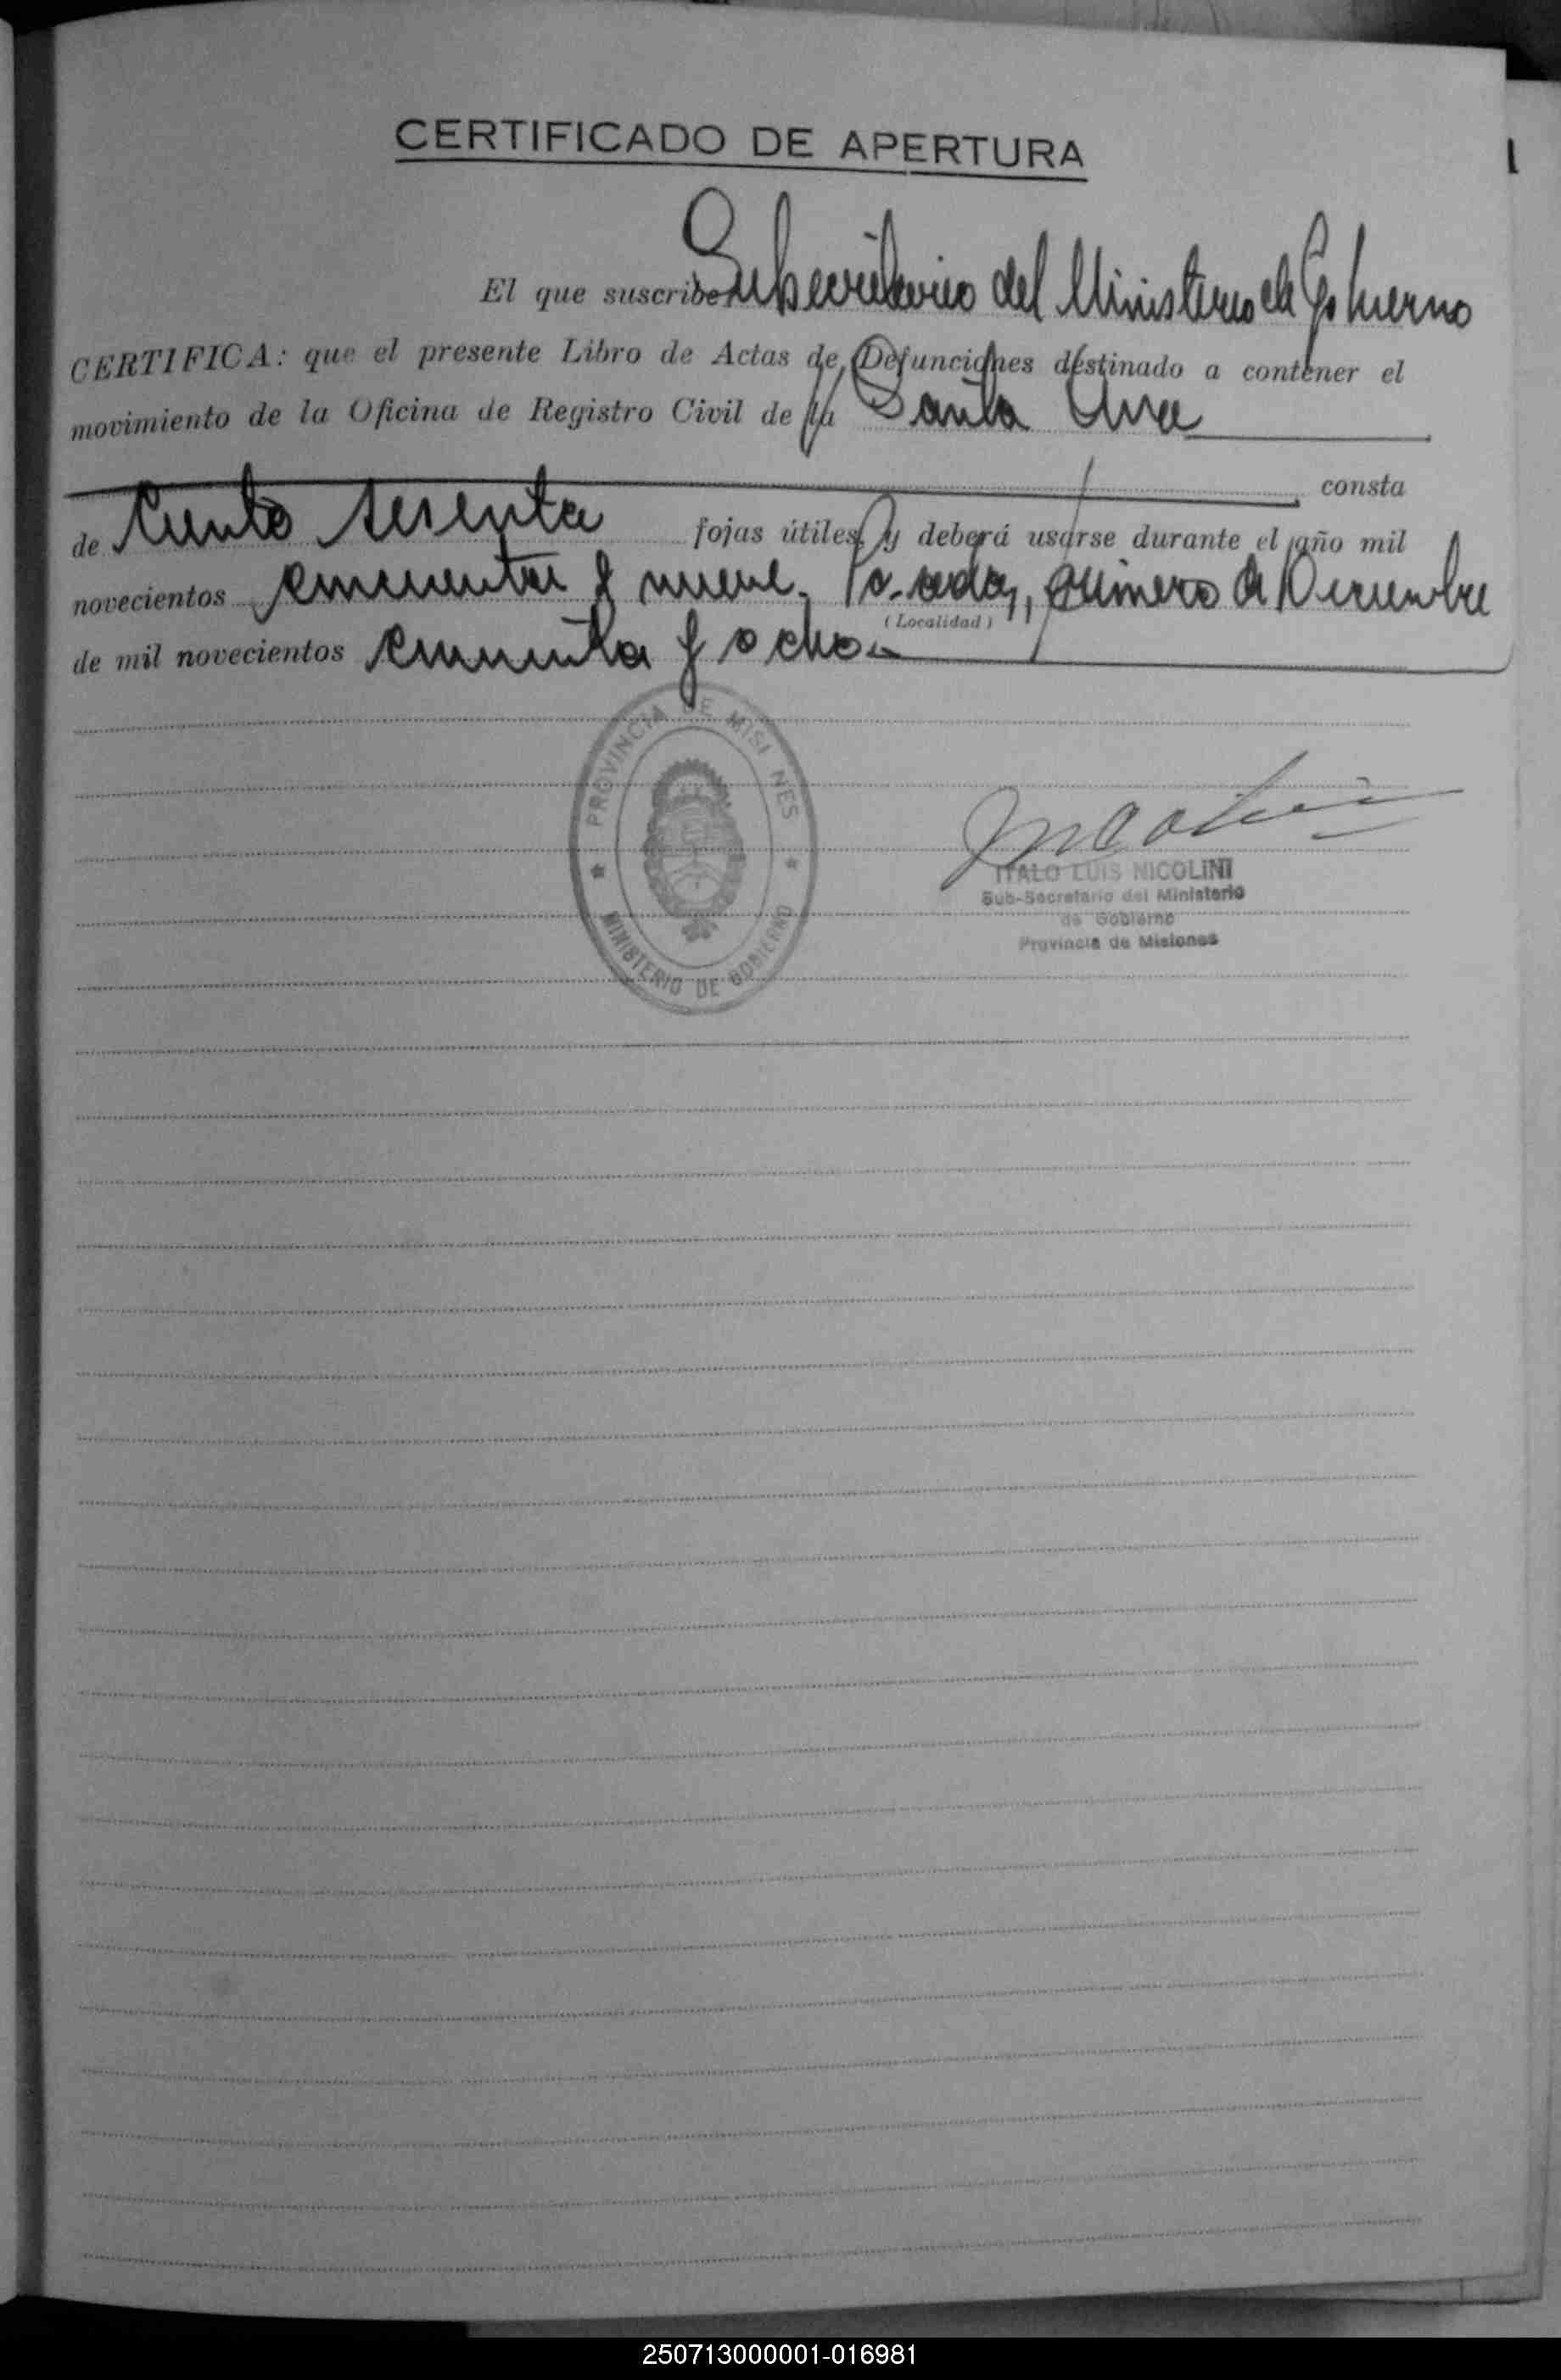 CERTIFICADO DE APERTURA
El que suscribe Subsecretario del Ministerio de Gobierno
CERTIFICA: que el presente Libro de Actas de Defunciones destinado a contener el
movimiento de la Oficina de Registro Civil de la Santa Ana
consta
de Ciento sesenta fojas útiles, y deberá usarse durante el año mil
novecientos cincuenta y nueve. Posadas, primero de Diciembre
(Localidad)
de mil novecientos cincuenta y ocho.-
PROVINCIA DE MISI NES
MINISTERIO DE GOBIERNO
ITALO LUIS NICOLINI
Sub-Secretario del Ministerio
de Gobierno
Provincia de Misiones
250713000001-016981